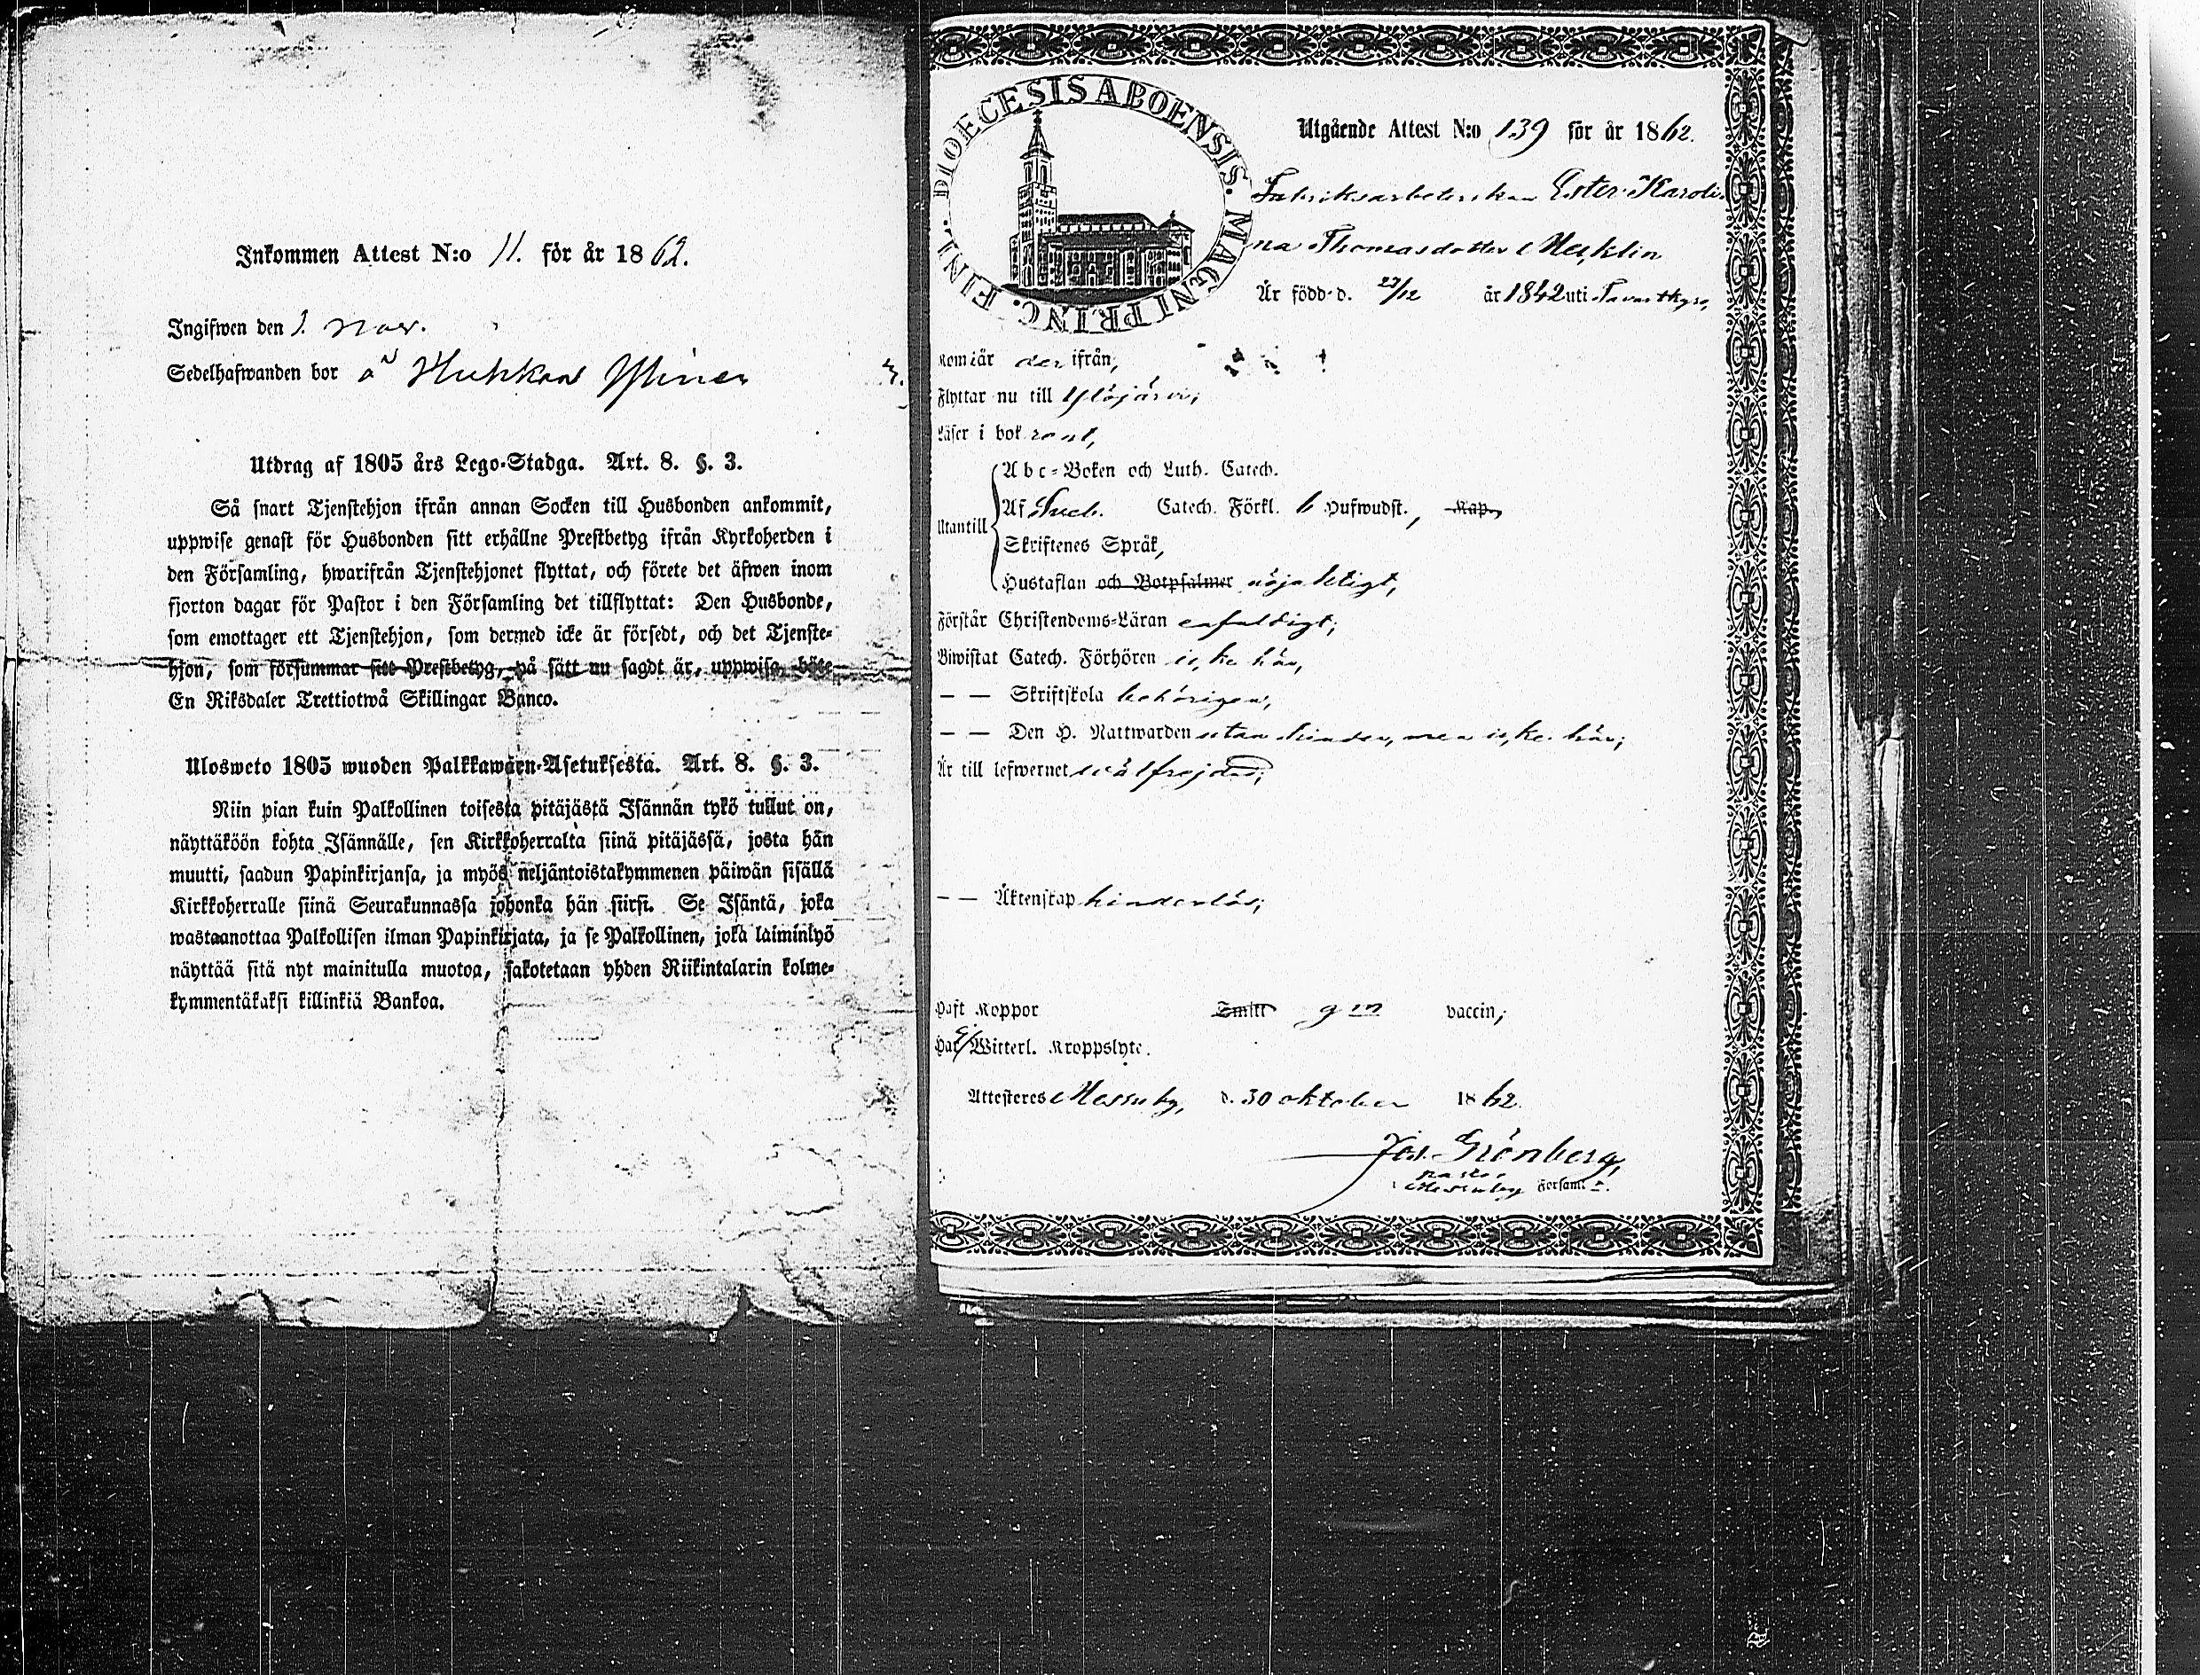 Inkommen Attest N:o 11. för år 1862.
Ingifwen den 1. Nov.
Sedelhafwanden bor å
Utdrag af 1805 års Lego-Stadga. Art. 8. §. 3.
Så snart Tjenstehjon ifrån annan Socken till Husbonden ankommit,
uppwise genast för Husbonden sitt erhållne Prestbetyg ifrån Kyrkoherden i
den Församling, hwarifrån Tjenstehjonet flyttat, och förete det äfwen inom
fjorton dagar för Pastor i den Församling det tillflyttat: Den Husbonde,
som emottager ett Tjenstehjon, som dermed icke är försedt, och det Tjenste-
hjon, som försummar sitt Prestbetyg, på sätt nu sagdt är, uppwisa, böte
En Riksdaler Trettiotwå Skillingar Banco.
Ulosweto 1805 wuoden Palkkawäen-Asetuksesta. Art. 8. §. 3.
Niin pian kuin Palkollinen toisesta pitäjästä Isännän tykö tullut on,
näyttäköön kohta Isännälle, sen Kirkkoherralta siinä pitäjässä, josta hän
muutti, saadun Papinkirjansa, ja myös neljäntoistakymmenen päiwän sisällä
Kirkkoherralle siinä Seurakunnassa johonka hän siirsi. Se Isäntä, joka
wastaanottaa Palkollisen ilman Papinkirjata, ja se Palkollinen, joka laiminlyö
näyttää sitä nyt mainitulla muotoa, sakotetaan yhden Riikintalarin kolme-
kymmentäkaksi killinkiä Bankoa.
DIOECESIS ABOENSIS. MAGNI PRINC. FINL.
Utgående Attest N:o 139 för år 1862.
Fabriksarbeterskan Ester Karoli-
na Thomasdotter Mecklin
Är född d. 27/12 år 1842 uti Tavastkyro,
Kom i år der ifrån,
Flyttar nu till Ylöjärvi;
Läser i bok rent,
Utantill
Abc-Boken och Luth. Catech.
Af Sveb. Catech. Förkl. 6 Hufwudst., Kap.
Skriftenes Språk,
Hustaflan och Botpsalmer nöjaktigt,
Förstår Christendoms-Läran enfaldigt;
Biwistat Catech. Förhören icke här,
— — Skriftskola behörigen,
— — Den H. Nattwarden utan hinder, men icke här;
Är till lefwernet wälfrejdad;
— — Äktenskap hinderlös;
Haft Koppor Smitt gm vaccin;
Har Ej Witterl. Kroppslyte.
Attesteres Messuby, d. 30 oktober 1862.
Jos. Grönberg,
Pastor
i Messuby Församl.